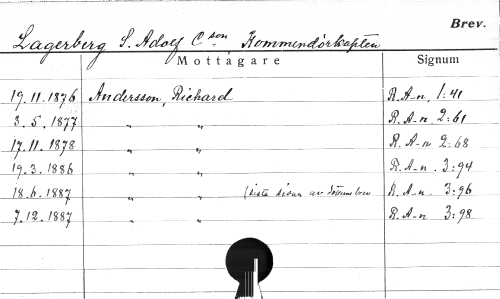 Brev.
Lagerberg S. Adolf C:son Kommendörkapten
Mottagare Signum
19.11.1876 Andersson, Richard R.A-n, 1:41
3.5.1877 " " R.A-n 2:61
17.11.1878 " " R.A-n 2:68
19.3.1886 " " R.A-n. 3:94
18.6.1887 " " (sista sidan av R.A-n. 3:96
7.12.1887 " " R.A-n 3:98